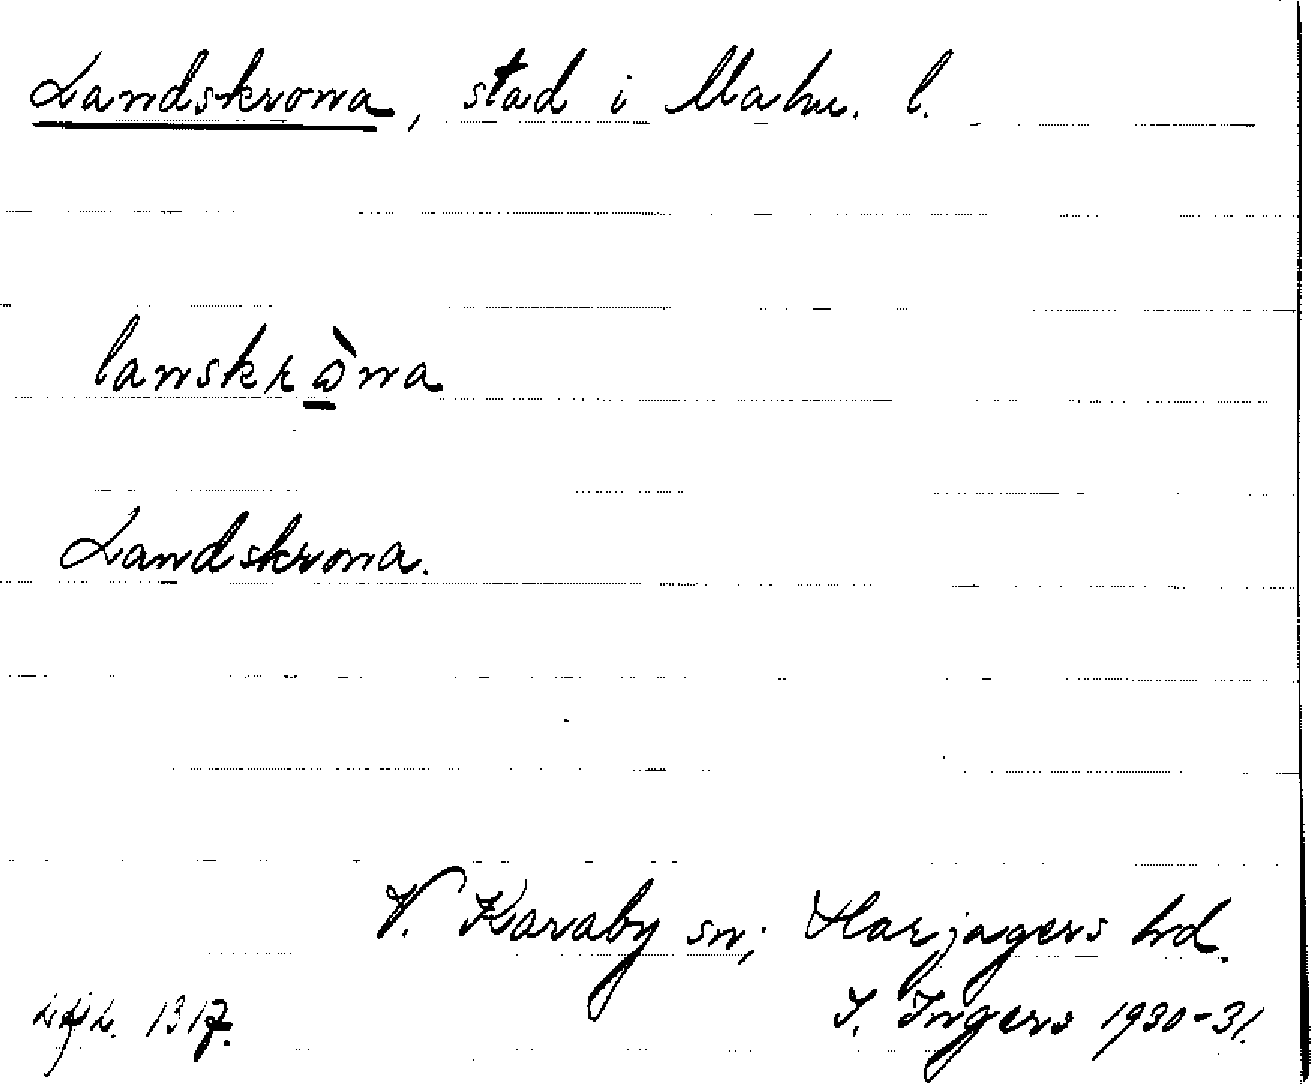 Landskrona, stad i Malm. l.
lanskrὼ̲na
Landskrona.
V. Karaby sn; Harjagers hd.
I. Ingers 1930-31.
1317.